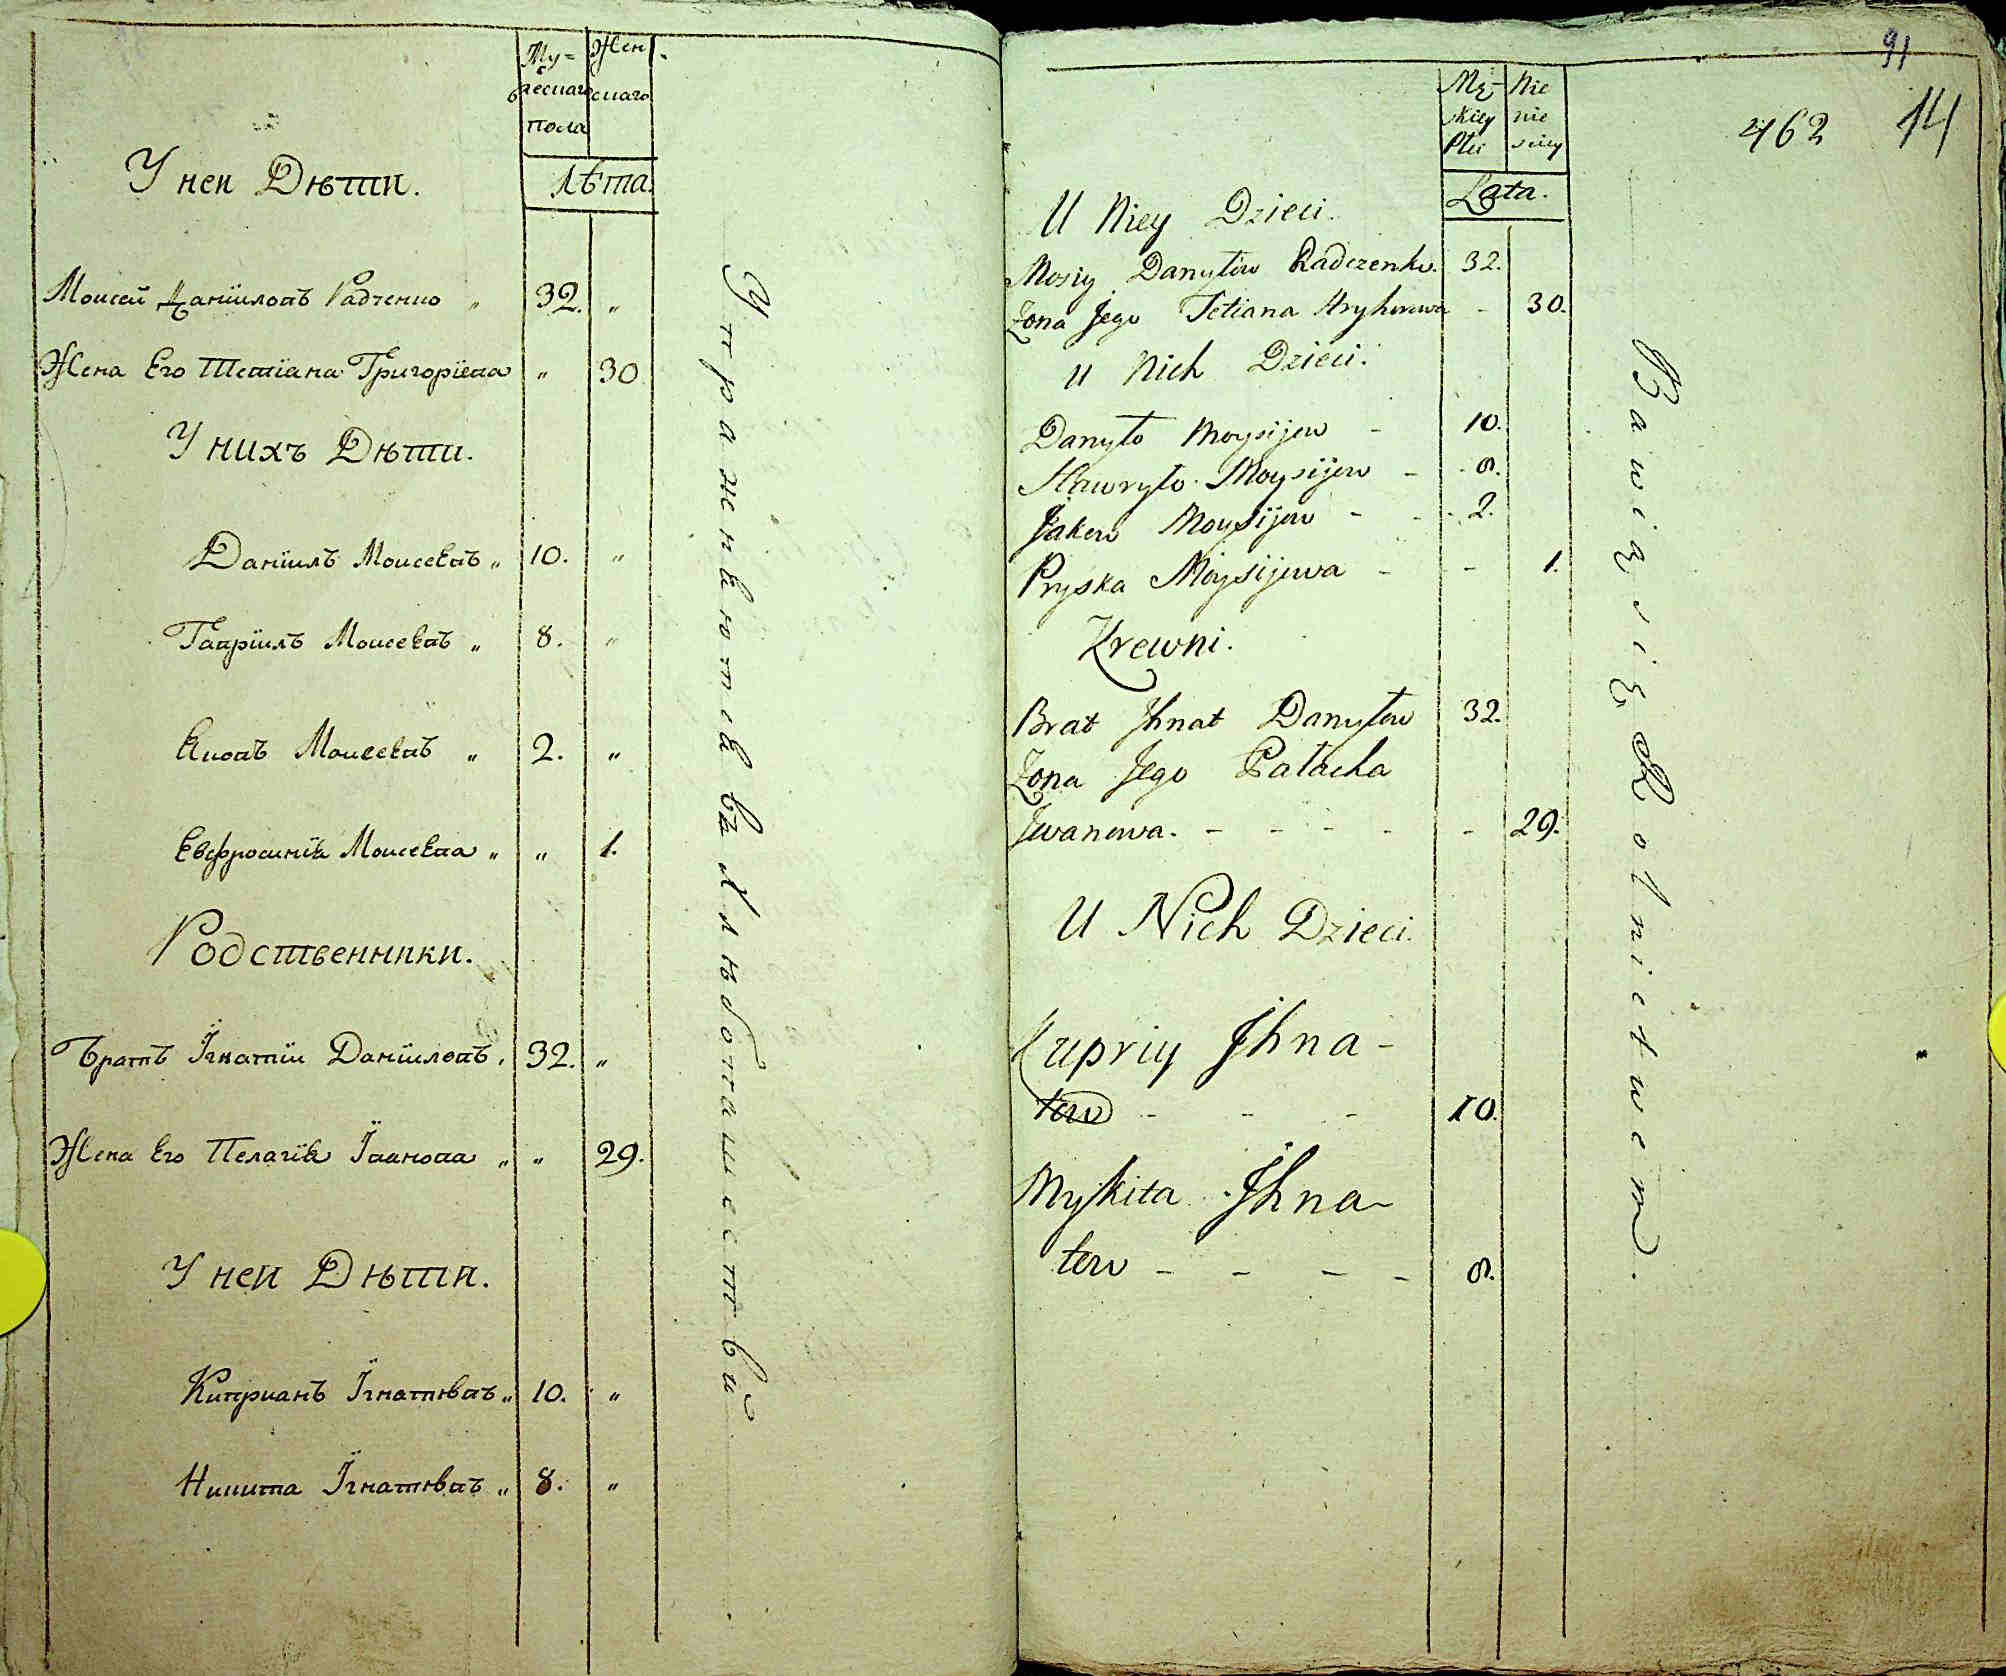 Му= Жен
жескаго скаго
пола
Лѣта.
У неи Дѣти.
Моисей Данїиловъ Радченко „ 32. „
Жена Его Тетїана Григорїева „ 30
У нихъ Дѣти.
Данїилъ Моисеевъ „ 10. „
Гаврїилъ Моисеевъ „ 8. „
Яковъ Моисеевъ „ 2. „
Евфросинїя Моисеева „ „ 1.
Родственники.
Братъ Їгнатїи Данїиловъ „ 32. „
Жена Его Пелагїя Їванова „ „ 29.
У неи Дѣти.
Киприанъ Їгнатѣвъ „ 10. „
Никита Їгнатѣвъ „ 8. „
Упражняютея въ хлѣбопашествѣ
91
462 14
Mę- Nie
skiey nie
Płci sciey
Lata.
U Niey Dzieci.
Mosiy Danyłow Radczenko. 32.
Żona Jego Tetiana Hryhorowa - 30.
U Nich Dzieci.
Danyło Moysijew - 10.
Hawryło Moysijew - - 8.
Jakow Moysijew - - - 2.
Pryska Moysijewa - - 1.
Krewni.
Brat Jhnat Danyłow 32.
Żona Jego Pałacha
Jwanowa. - - - - - 29.
U Nich Dzieci.
Kupriy Jhna-
tow - - - 10.
Mykita Jhna-
tow - - - - 8.
Bawią się Rolnictwem.